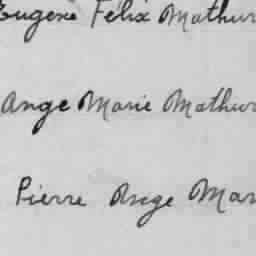 Eugene Felix Mathur
Ange Marie Mathur
Pierre Ange Mar